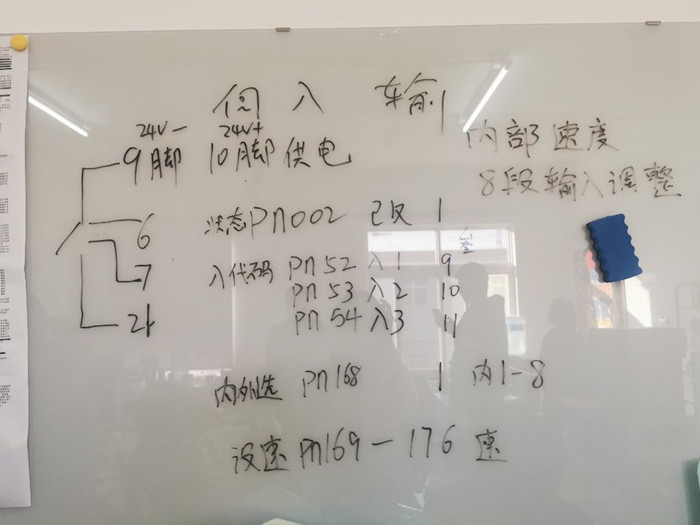 伺入 输
内部速度
8段输入调整
24V- 24V+
9脚 10脚供电
6 状态Pn002 已改 1
7 入代码 Pn52 入1 9
Pn53 入2 10
21 Pn54 入3 11
内外选 Pn168 1 内1-8
设速Pn169-176 速